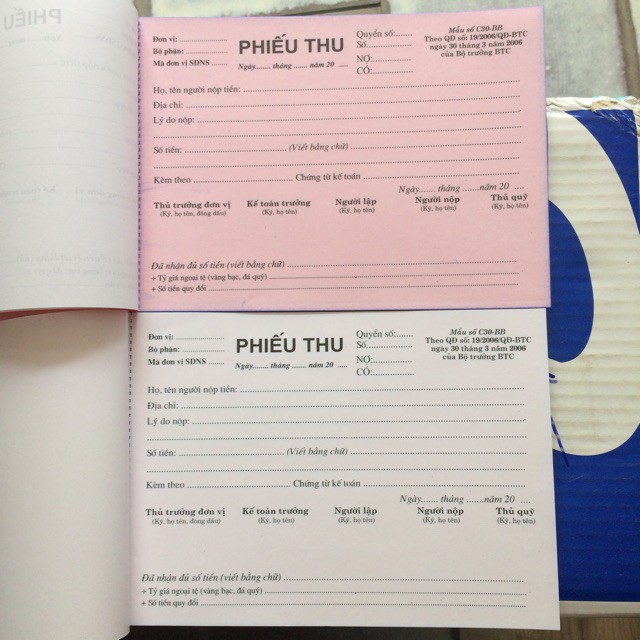 PHIẾU
Đơn vị: ........................
Bộ phận: ........................
Mã đơn vị SDNS ......
PHIẾU THU
Ngày....... tháng ....... năm 20 .....
Quyển số:......
Số..............
NỢ:..............
CÓ:..............
Mẫu số C30-BB
Theo QĐ số: 19/2006/QĐ-BTC
ngày 30 tháng 3 năm 2006
của Bộ trưởng BTC
Họ, tên người nộp tiền: ........................
Địa chỉ: ........................
Lý do nộp: ........................
Số tiền: ........................ (Viết bằng chữ) ........................
Kèm theo ........................ Chứng từ kế toán ........................
Ngày....... tháng .......năm 20 ....
Thủ trưởng đơn vị Kế toán trưởng Người lập Người nộp Thủ quỹ
(Ký, họ tên, đóng dấu) (Ký, họ tên) (Ký, họ tên) (Ký, họ tên) (Ký, họ tên)
Đã nhận đủ số tiền (viết bằng chữ) ........................
+ Tỷ giá ngoại tệ (vàng bạc, đá quý) ........................
+ Số tiền quy đổi ........................
Đơn vị: ........................
Bộ phận: ........................
Mã đơn vị SDNS ......
PHIẾU THU
Ngày....... tháng ....... năm 20 .....
Quyển số:......
Số..............
NỢ:..............
CÓ:..............
Mẫu số C30-BB
Theo QĐ số: 19/2006/QĐ-BTC
ngày 30 tháng 3 năm 2006
của Bộ trưởng BTC
Họ, tên người nộp tiền: ........................
Địa chỉ: ........................
Lý do nộp: ........................
Số tiền: ........................ (Viết bằng chữ) ........................
Kèm theo ........................ Chứng từ kế toán ........................
Ngày....... tháng .......năm 20 ....
Thủ trưởng đơn vị Kế toán trưởng Người lập Người nộp Thủ quỹ
(Ký, họ tên, đóng dấu) (Ký, họ tên) (Ký, họ tên) (Ký, họ tên) (Ký, họ tên)
Đã nhận đủ số tiền (viết bằng chữ) ........................
+ Tỷ giá ngoại tệ (vàng bạc, đá quý) ........................
+ Số tiền quy đổi ........................